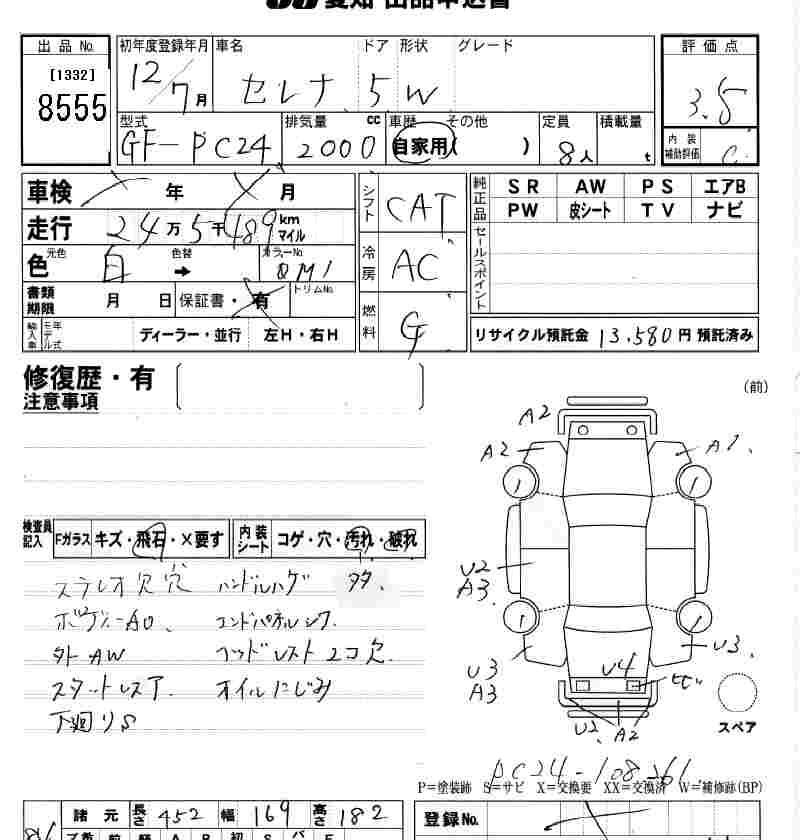 愛知 出品申込書
出品 No.
[1332]
8555
初年度登録年月 車名 ドア 形状 グレード
12/7月 セレナ 5 W
型式 排気量 cc 車歴 その他 定員 積載量
GF-PC24 2000 自家用( ) 8人 t
評価点
3.5
内装補助評価 C
車検 年 月
走行 24万5千489 km マイル
色 元色 白 色替 → カラーNo. QM1
書類期限 月 日 保証書・有 トリムNo.
輸入車 モデル年式 ディーラー・並行 左H・右H
シフト CAT
冷房 AC
燃料 G
純正品 SR AW PS エアB
PW 皮シート TV ナビ
セールスポイント
リサイクル預託金 13.580円 預託済み
修復歴・有
注意事項
検査員記入 Fガラス キズ・飛石・×要す 内装シート コゲ・穴・汚れ・破れ
ステレオ欠穴 ハンドルハゲ 多タ.
ボディーA0. エンドパネルシワ.
外AW ヘッドレスト2コ欠.
スタットレスア. オイルにじみ
下廻りS
(前)
A2
A2 A1
U2
A3
U3
A3
U4
U3
ヒビ
U2 A2
スペア
PC24-108261
P=塗装跡 S=サビ X=交換要 XX=交換済 W=補修跡(BP)
諸元 長さ 452 幅 169 高さ 182
登録No.